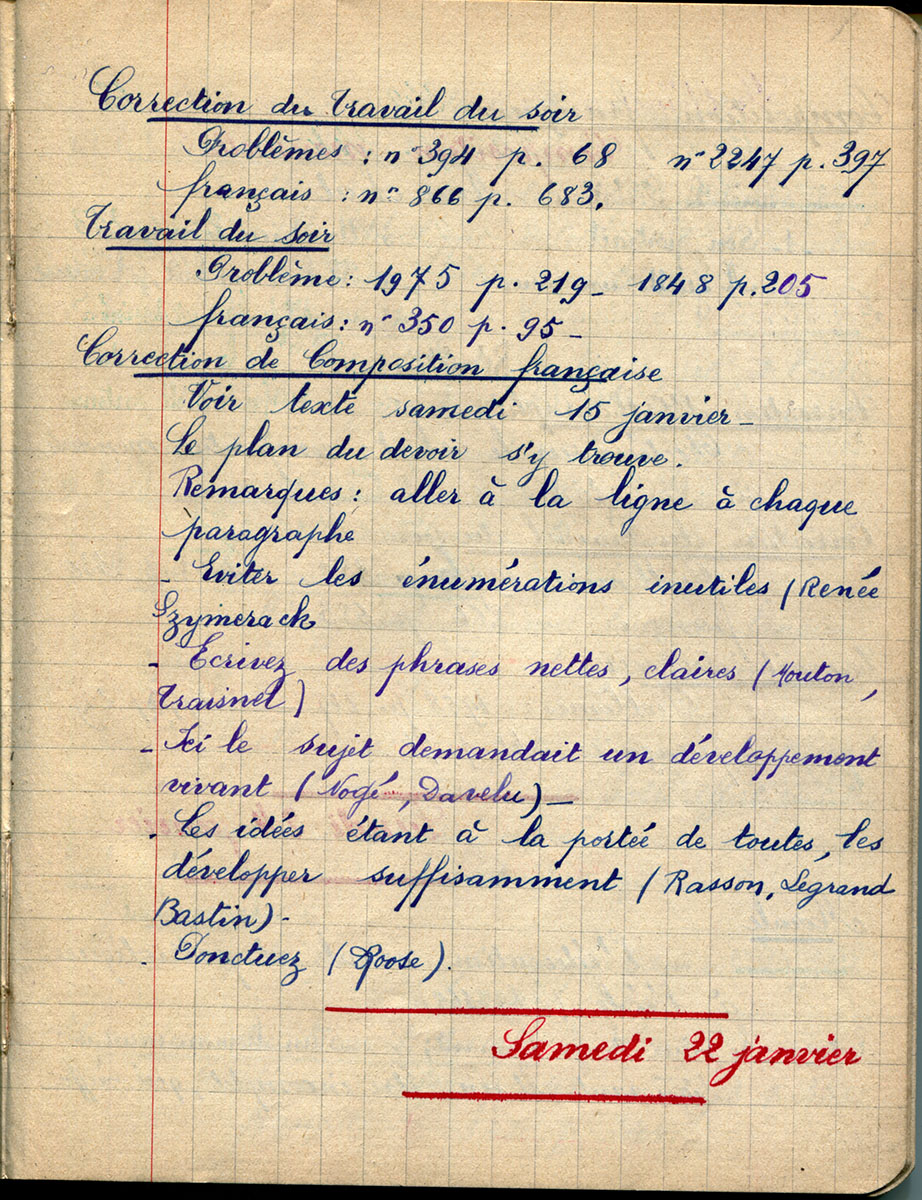 Correction du travail du soir
Problèmes : n° 394 p. 68 n° 2247 p. 397
français : n° 866 p. 683.
Travail du soir
Problème : 1975 p. 219 - 1848 p. 205
français : n° 350 p. 95 -
Correction de Composition française
Voir texte samedi 15 janvier -
Le plan du devoir s'y trouve.
Remarques : aller à la ligne à chaque
paragraphe
- Eviter les énumérations inutiles (Renée
Szymerack
- Ecrivez des phrases nettes, claires (Mouton,
Traisnel)
- Ici le sujet demandait un développement
vivant (Nogé, Davelu) -
- Les idées étant à la portée de toutes, les
développer suffisamment (Rasson, Legrand
Bastin) -
- Ponctuez (Roose).
Samedi 22 janvier